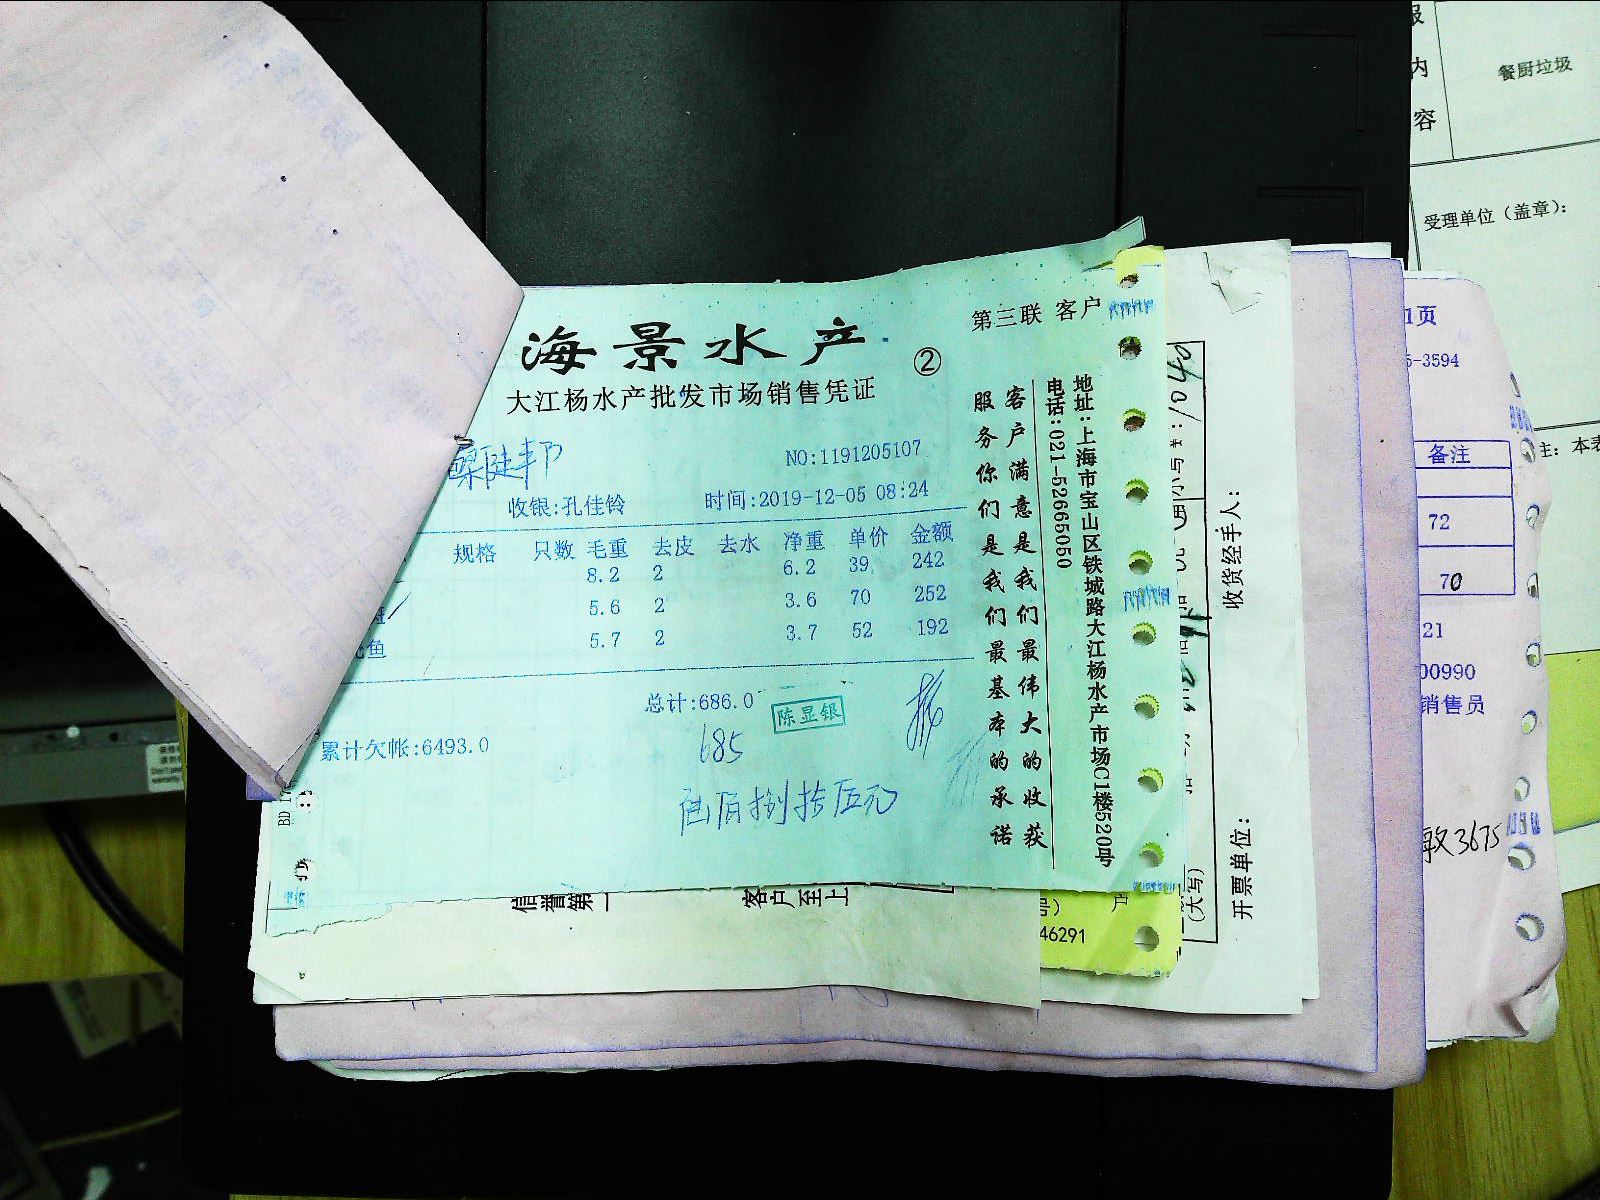 海景水产
②
第三联 客户
大江杨水产批发市场销售凭证
NO:1191205107
收银:孔佳铃
时间:2019-12-05 08:24
规格 只数 毛重 去皮 去水 净重 单价 金额
8.2 2 6.2 39 242
5.6 2 3.6 70 252
鱼 5.7 2 3.7 52 192
总计:686.0
陈显银
685
累计欠帐:6493.0
陆佰捌拾伍元
客户满意是我们最伟大的收获
服务你们是我们最基本的承诺
地址:上海市宝山区铁城路大江杨水产市场C1楼520号
电话:021-52665050
信誉第一
客户至上
号)
户
46291
1040
(大写)
收货经手人:
开票单位:
1页
5-3594
备注
72
70
21
00990
销售员
3675
服
内
容
餐厨垃圾
受理单位(盖章):
注:本表